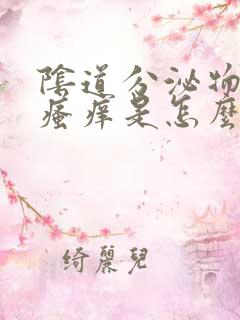 陰道分泌物
瘙痒是怎麼
綺麗兒